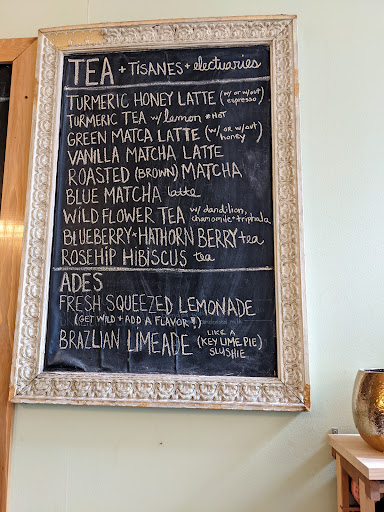 TEA + TISANES + electuaries
TURMERIC HONEY LATTE (w/ or w/out) espresso
TURMERIC TEA w/ lemon *HOT
GREEN MATCA LATTE (w/ OR w/out) honey
VANILLA MATCHA LATTE
ROASTED (BROWN) MATCHA
BLUE MATCHA latte
WILD FLOWER TEA w/ dandilion, chamomile + triphala
BLUEBERRY * HATHORN BERRY tea
ROSEHIP HIBISCUS tea
ADES
FRESH SQUEEZED LEMONADE
(GET WILD + ADD A FLAVOR!)
BRAZLIAN LIMEADE (LIKE A KEY LIME PIE) SLUSHIE